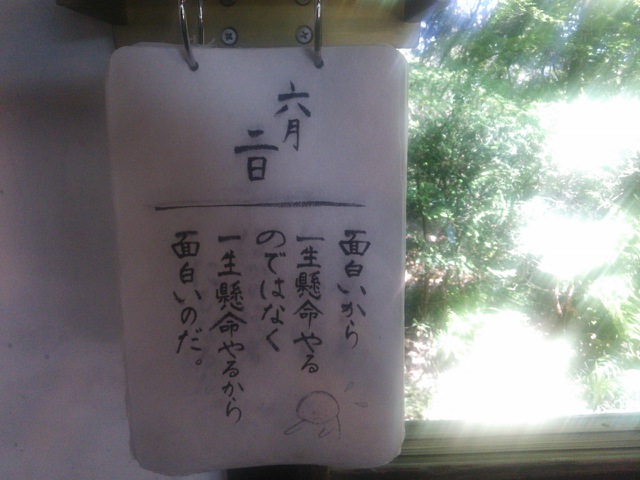 六月
二日
面白いから
一生懸命やる
のではなく
一生懸命やるから
面白いのだ。